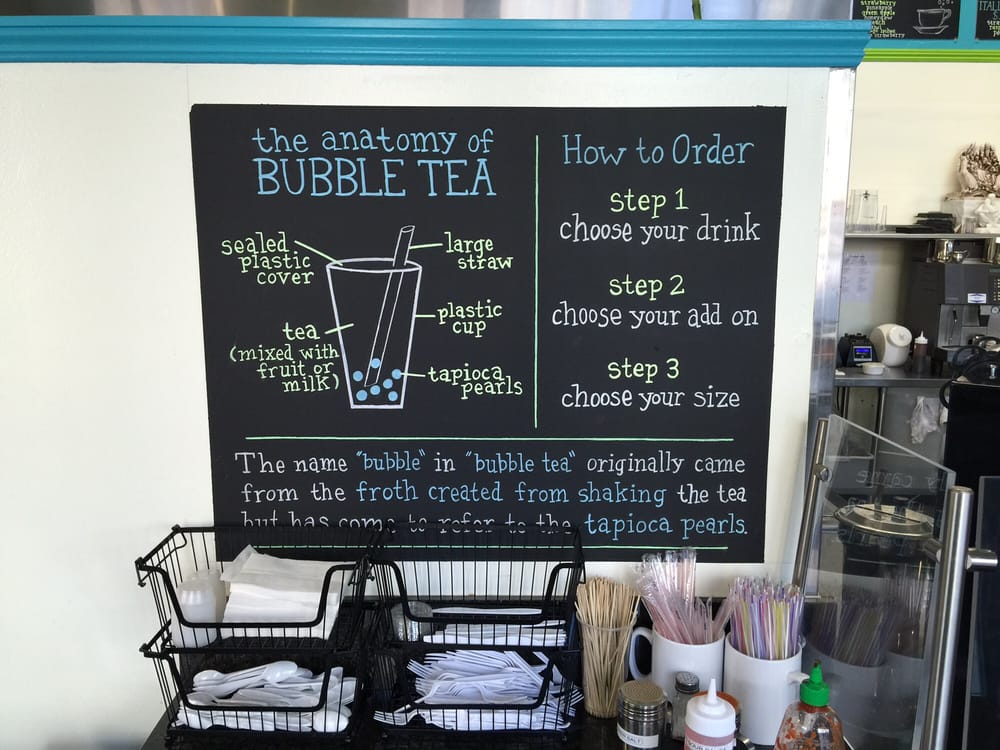 the anatomy of
BUBBLE TEA
sealed
plastic
cover
large
straw
plastic
cup
tea
(mixed with
fruit or
milk)
tapioca
pearls
How to Order
step 1
choose your drink
step 2
choose your add on
step 3
choose your size
The name "bubble" in "bubble tea" originally came
from the froth created from shaking the tea
but has come to refer to the tapioca pearls.
strawberry
pineapple
green apple
honeydew